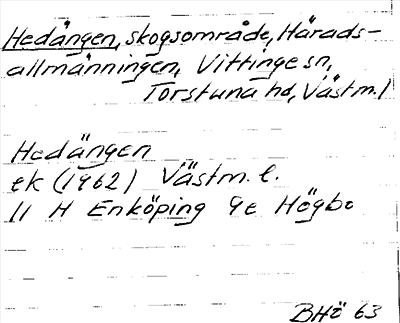 Hedängen, skogsområde, Härads-
allmänningen, Vittinge sn,
Torstuna hd, Västm. l
Hedängen
ek (1962) Västm. l.
11 H Enköping 9e Högbo
BHö 63